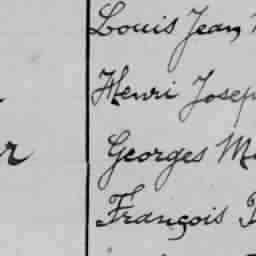 Louis Jean
Henri Josep
r Georges M
François